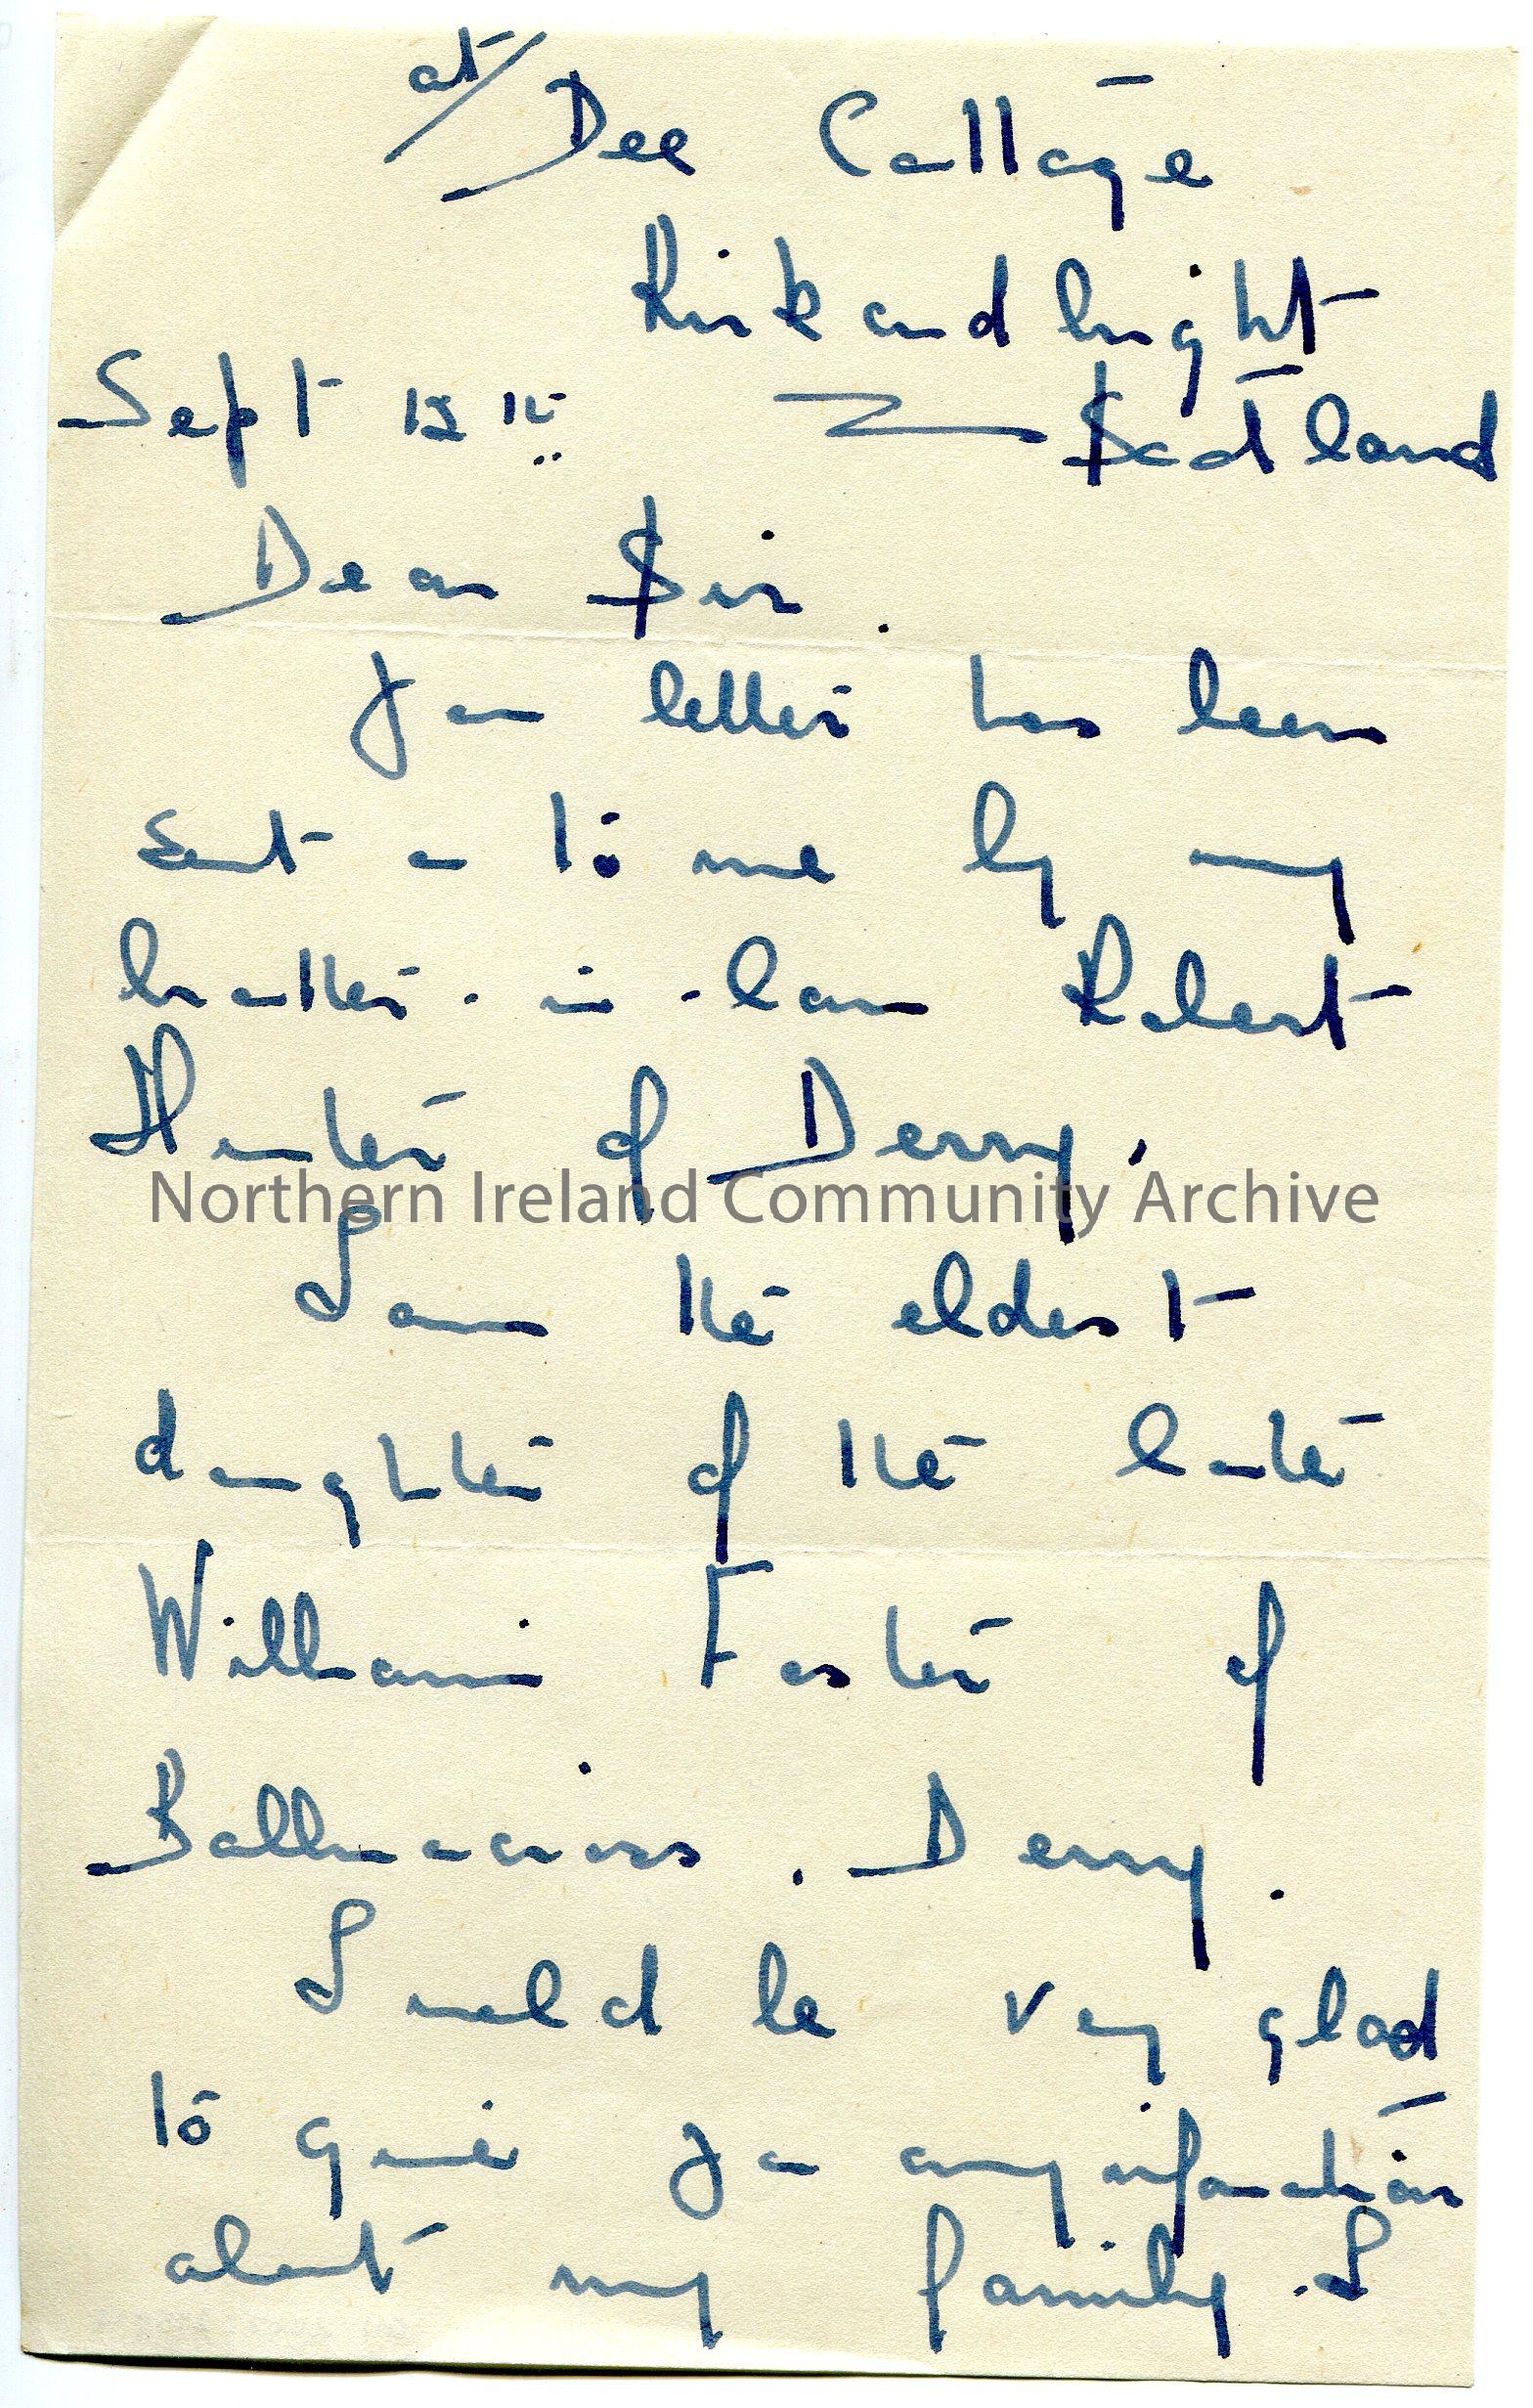 at/ Dee Cottage
Kirkcudbright
Sept 12th Scotland
Dear Sir.
Your letter has been
sent on to me by my
brother-in-law Robert
Hunter of Derry.
Northern Ireland Community Archive
I am the eldest
daughter of the late
William Foster of
Ballinacross. Derry.
I would be very glad
to give you any information
about my family. I